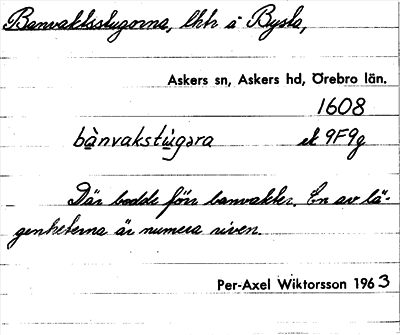 Banvaktsstugorna, lhtr å Bysta,
Askers sn, Askers hd, Örebro län.
1608
bànvakstùgara ek 9F9g
Där bodde förr banvakter. En av lä-
genheterna är numera riven.
Per-Axel Wiktorsson 1963